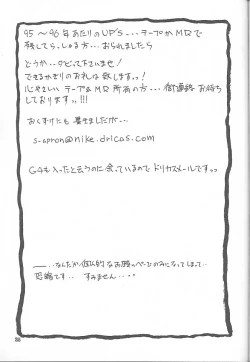 95～96年あたりのUP'S・・・テープかMDで
残してらっしゃる方・・・おられましたら
どうか・・ダビって下さいませ!
できるかぎりのお礼は致しますッ!
心やさしいテープ&MD所有の方・・・御連絡お待ち
しておりますッ!!!
おくずけにも書きましたが・・
s-apron@nike.dricas.com
G4も入ったと云うのに余っているのでドリカスメールですッ
――・・なんだか私的なお願いページのみになってしまって・・
恐縮です・・すみません・・・・